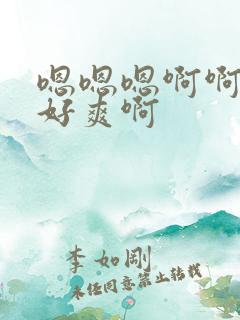 嗯嗯嗯啊啊
好爽啊
李如刚
未经同意禁止转载